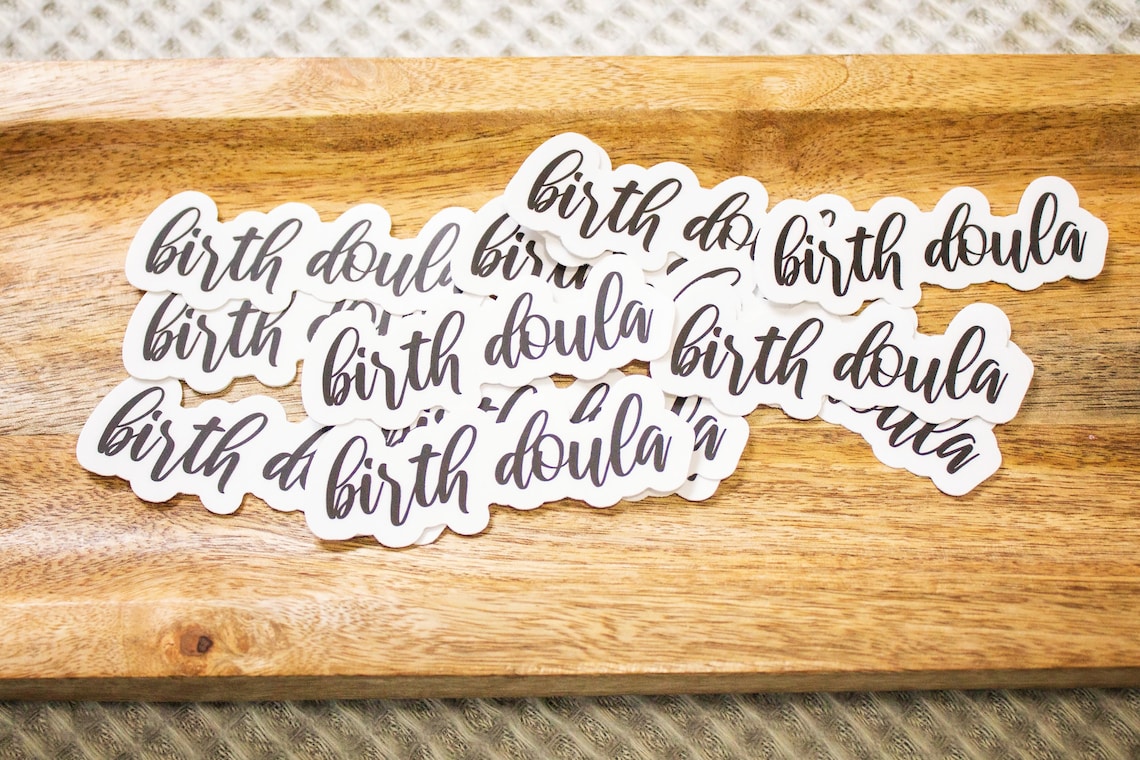 birth doula
birth doula
birth doula
birth
birth
birth doula
birth doula
birth do
birth doula
doula